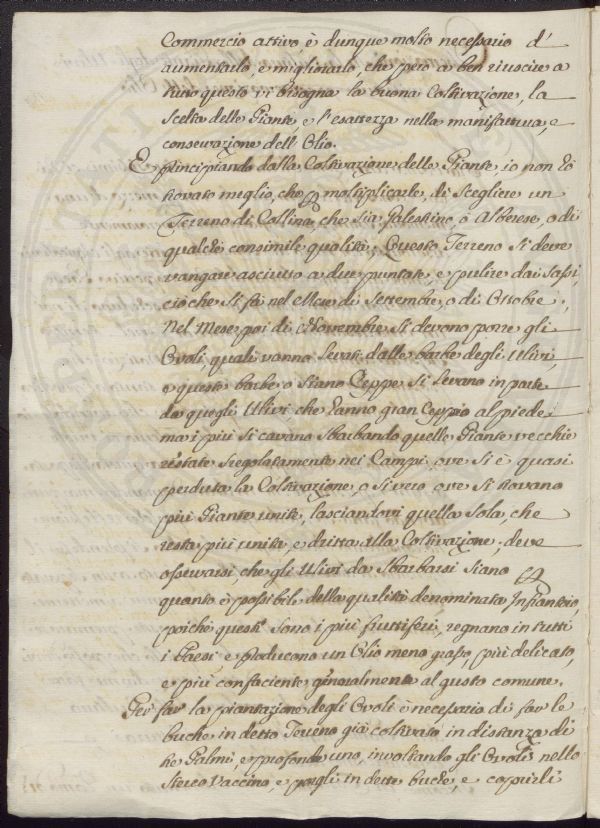 Commercio attivo è dunque molto necessario d'
aumentarlo, e migliorarlo, che però a ben riuscire a
tutto questo vi bisogna la buona Coltivazione, la
Scelta delle Piante, e l'esattezza nella manifattura, e
conservazione dell'Olio.
E principiando dalla Coltivazione delle Piante, io non ho
trovato meglio, che p moltiplicarle, di Scegliere un
Terreno di Collina, che sia Galestrino o Alberese, o di
qualche consimile qualità. Questo Terreno Si deve
vangare asciutto a due puntate, e pulire dai Sassi,
ciò che Si fà nel Mese di Settembre, o di Ottobre.
Nel Mese poi di Novembre Si devono porre gli
Ovoli, quali vanno levati dalle barbe degli Ulivi,
e queste barbe o Siano Ceppe Si levano in parte
da quegli Ulivi che hanno gran Ceppo al piede
ma i più Si cavano Sbarbando quelle Piante vecchie
restate sregolatamente nei Campi, ove Si è quasi
perduta la Coltivazione, o Si vero ove Si trovano
più Piante unite, lasciandovi quella Sola, che
resta più unita, e dritta alla Coltivazione; deve
osservarsi, che gli Ulivi da Sbarbarsi Siano p
quanto è possibile della qualità denominata Infrantoio,
poiche questi Sono i più fruttiferi, regnano in tutti
i Paesi, e producono un Olio meno grasso, più delicato,
e più confaciente generalmente al gusto comune.
Per far la piantazione degli Ovoli è necessario di far le
buche in detto Terreno già coltivato in distanza di
tre Palmi, e profonde uno, involtando gli Ovoli nello
Sterco Vaccino, e porgli in dette buche, e coprirli